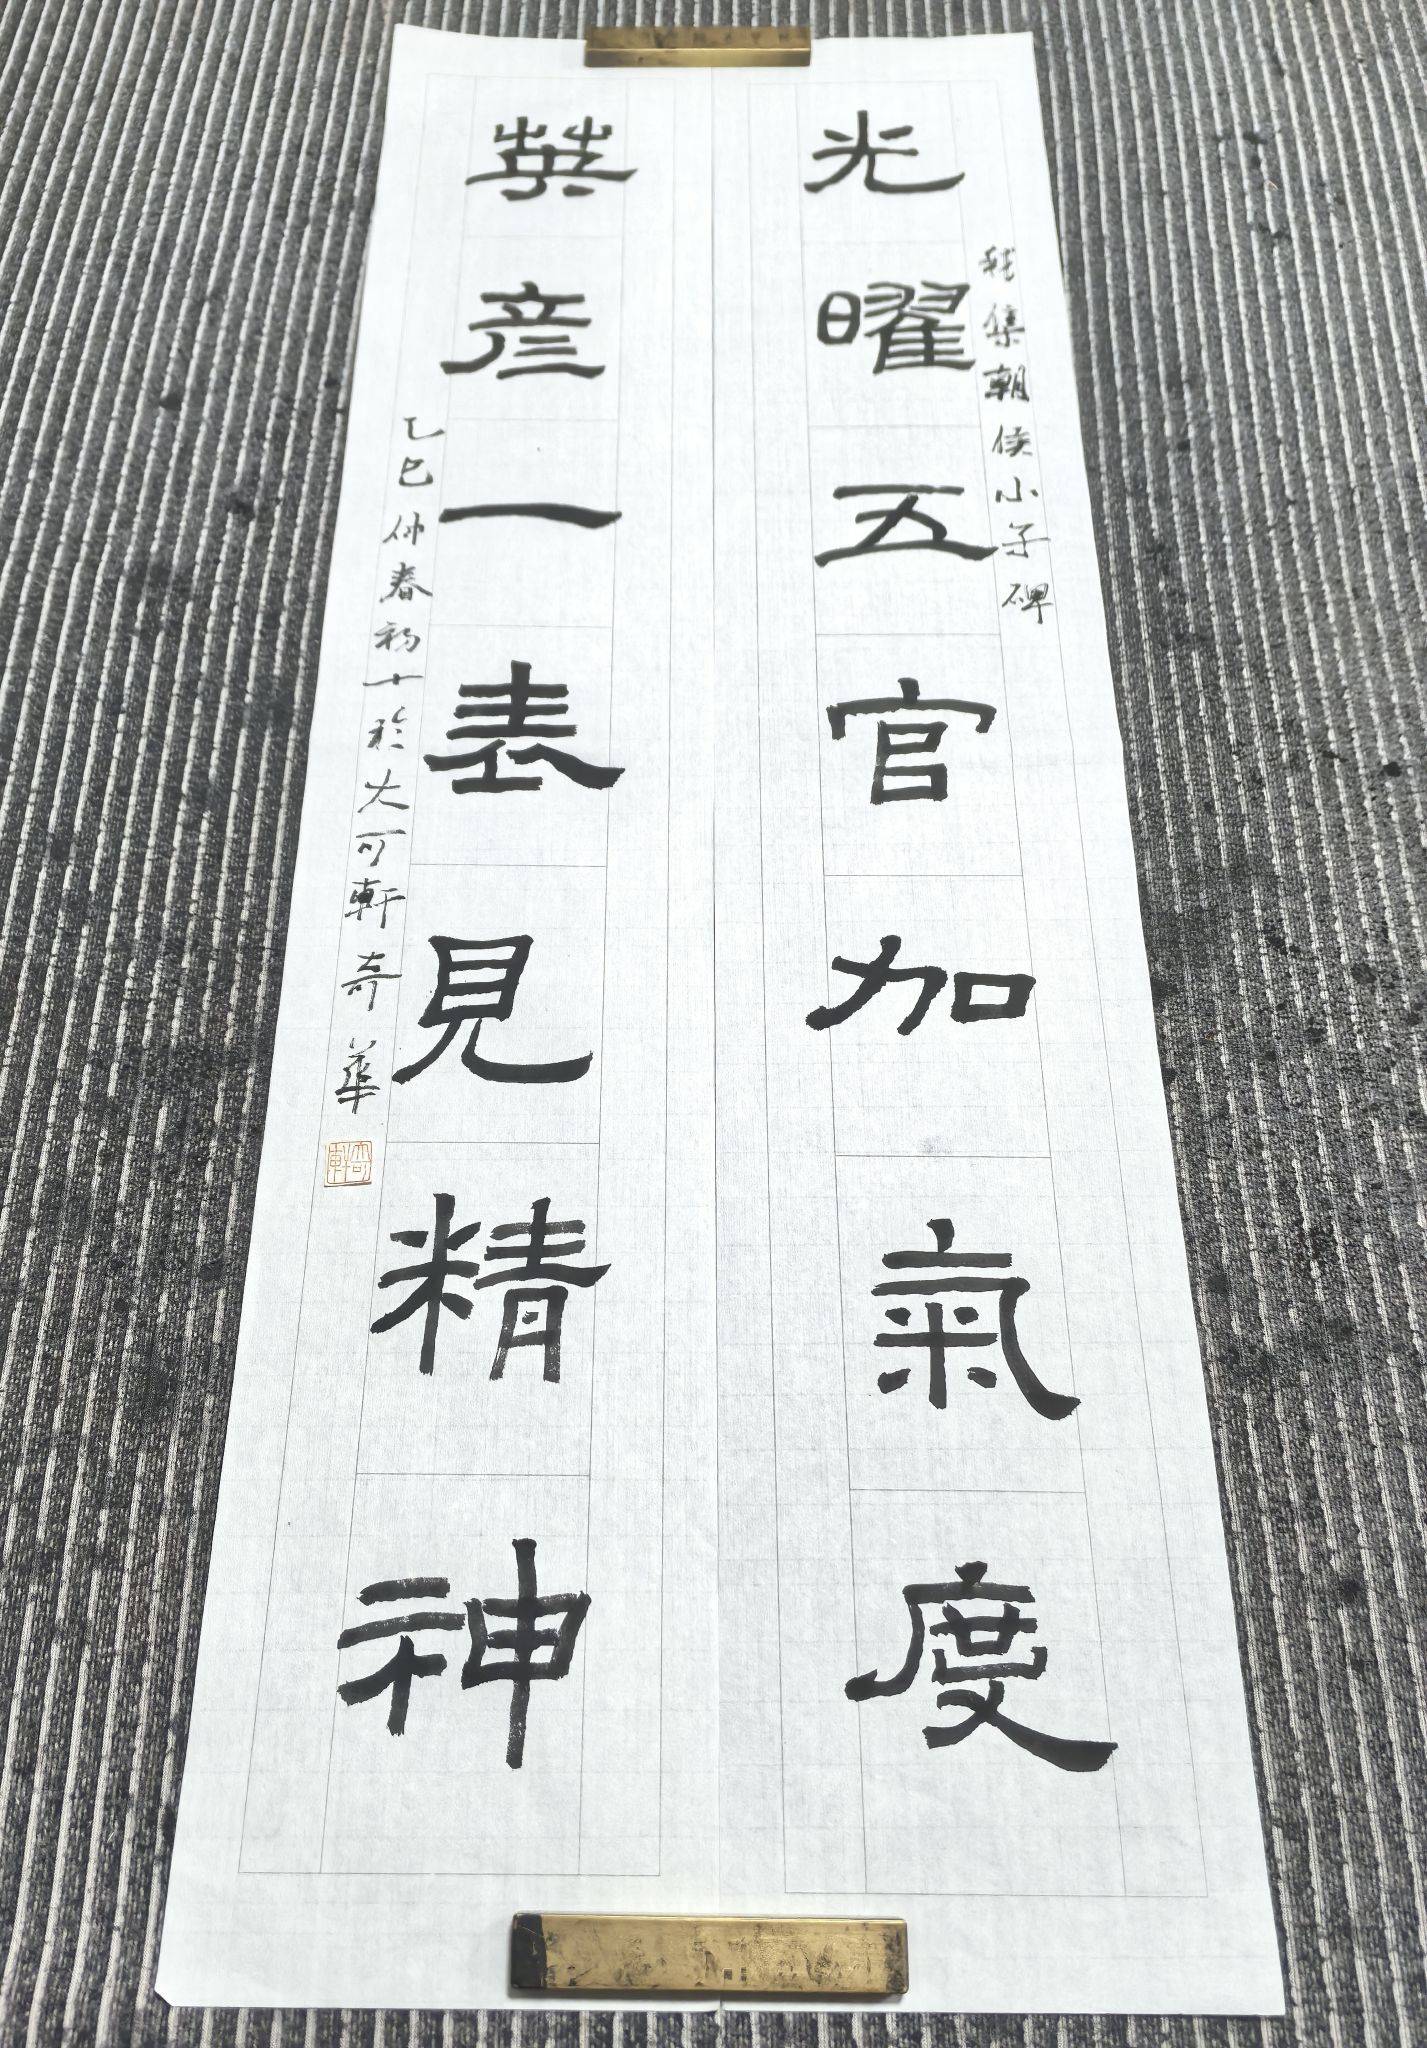 光曜五官加氣度
我集朝侯小子碑
英彦一表見精神
乙巳仲春初十於大可軒奇華